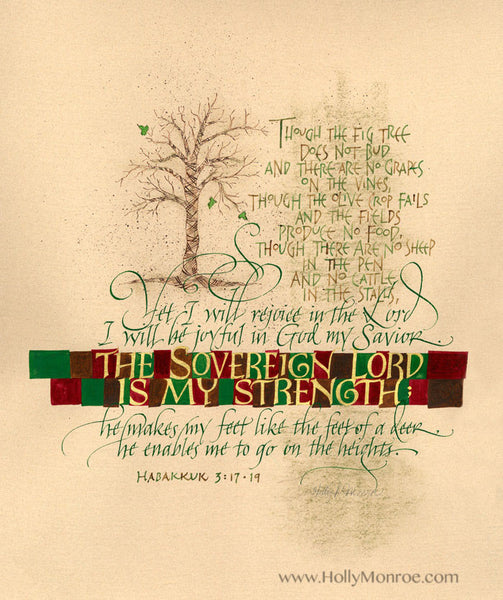 THOUGH THE FIG TREE
DOES NOT BUD
AND THERE ARE NO GRAPES
ON THE VINES,
THOUGH THE OLIVE CROP FAILS
AND THE FIELDS
PRODUCE NO FOOD,
THOUGH THERE ARE NO SHEEP
IN THE PEN
AND NO CATTLE
IN THE STALLS,
Yet I will rejoice in the Lord
I will be joyful in God my Savior.
THE SOVEREIGN LORD
IS MY STRENGTH;
he makes my feet like the feet of a deer.
he enables me to go on the heights.
HABAKKUK 3:17-19
www.HollyMonroe.com